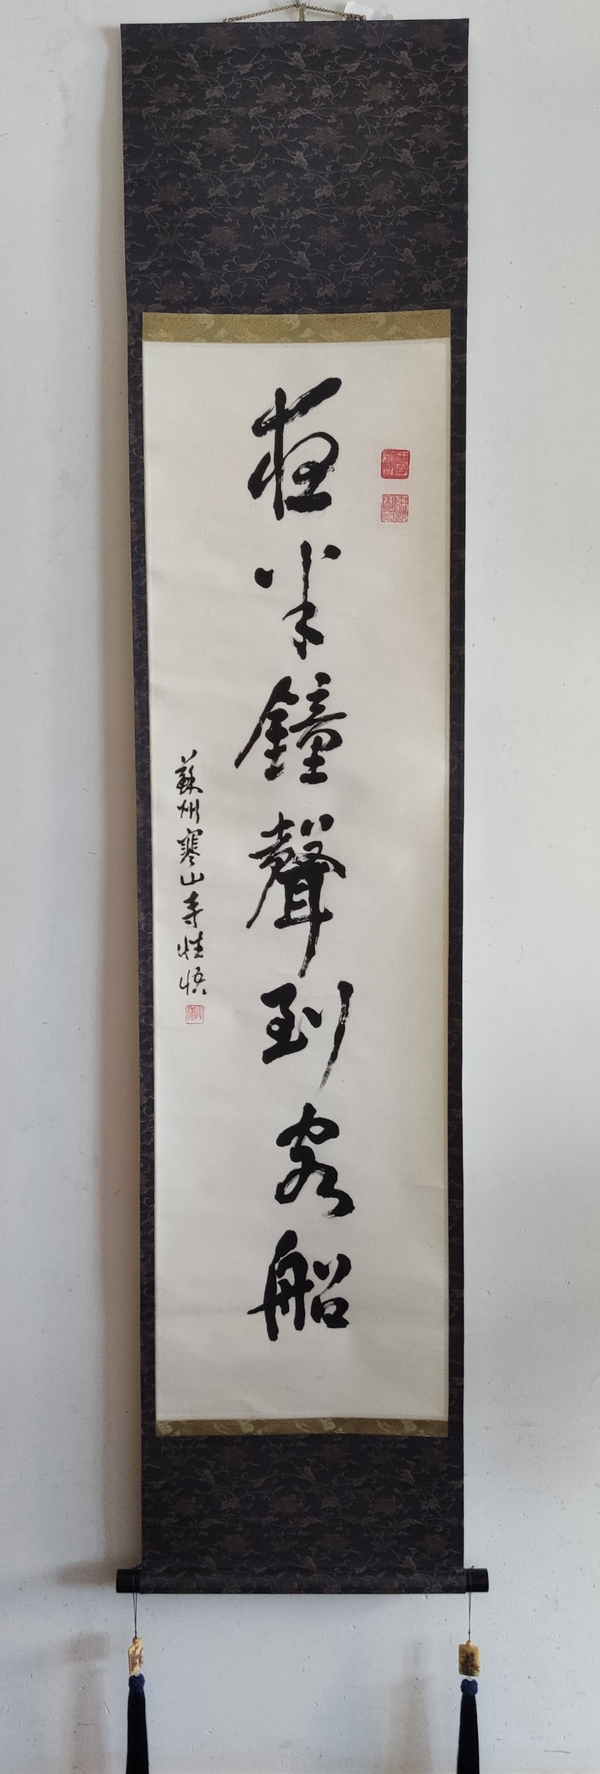 夜半鐘聲到客船
蘇州寒山寺性悟